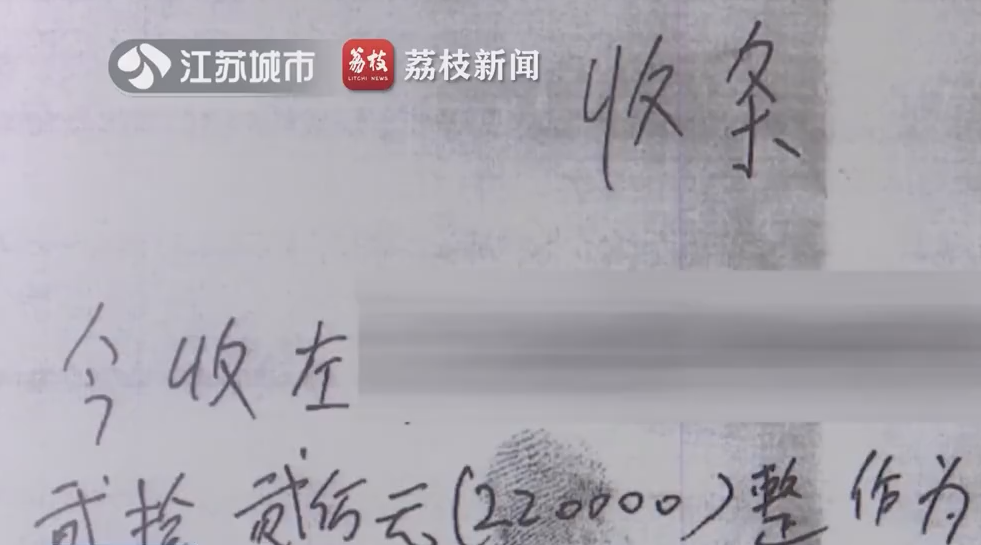 江苏城市 荔枝 LITCHI NEWS 荔枝新闻
收条
今收左
贰拾 贰元(220000)整 作为